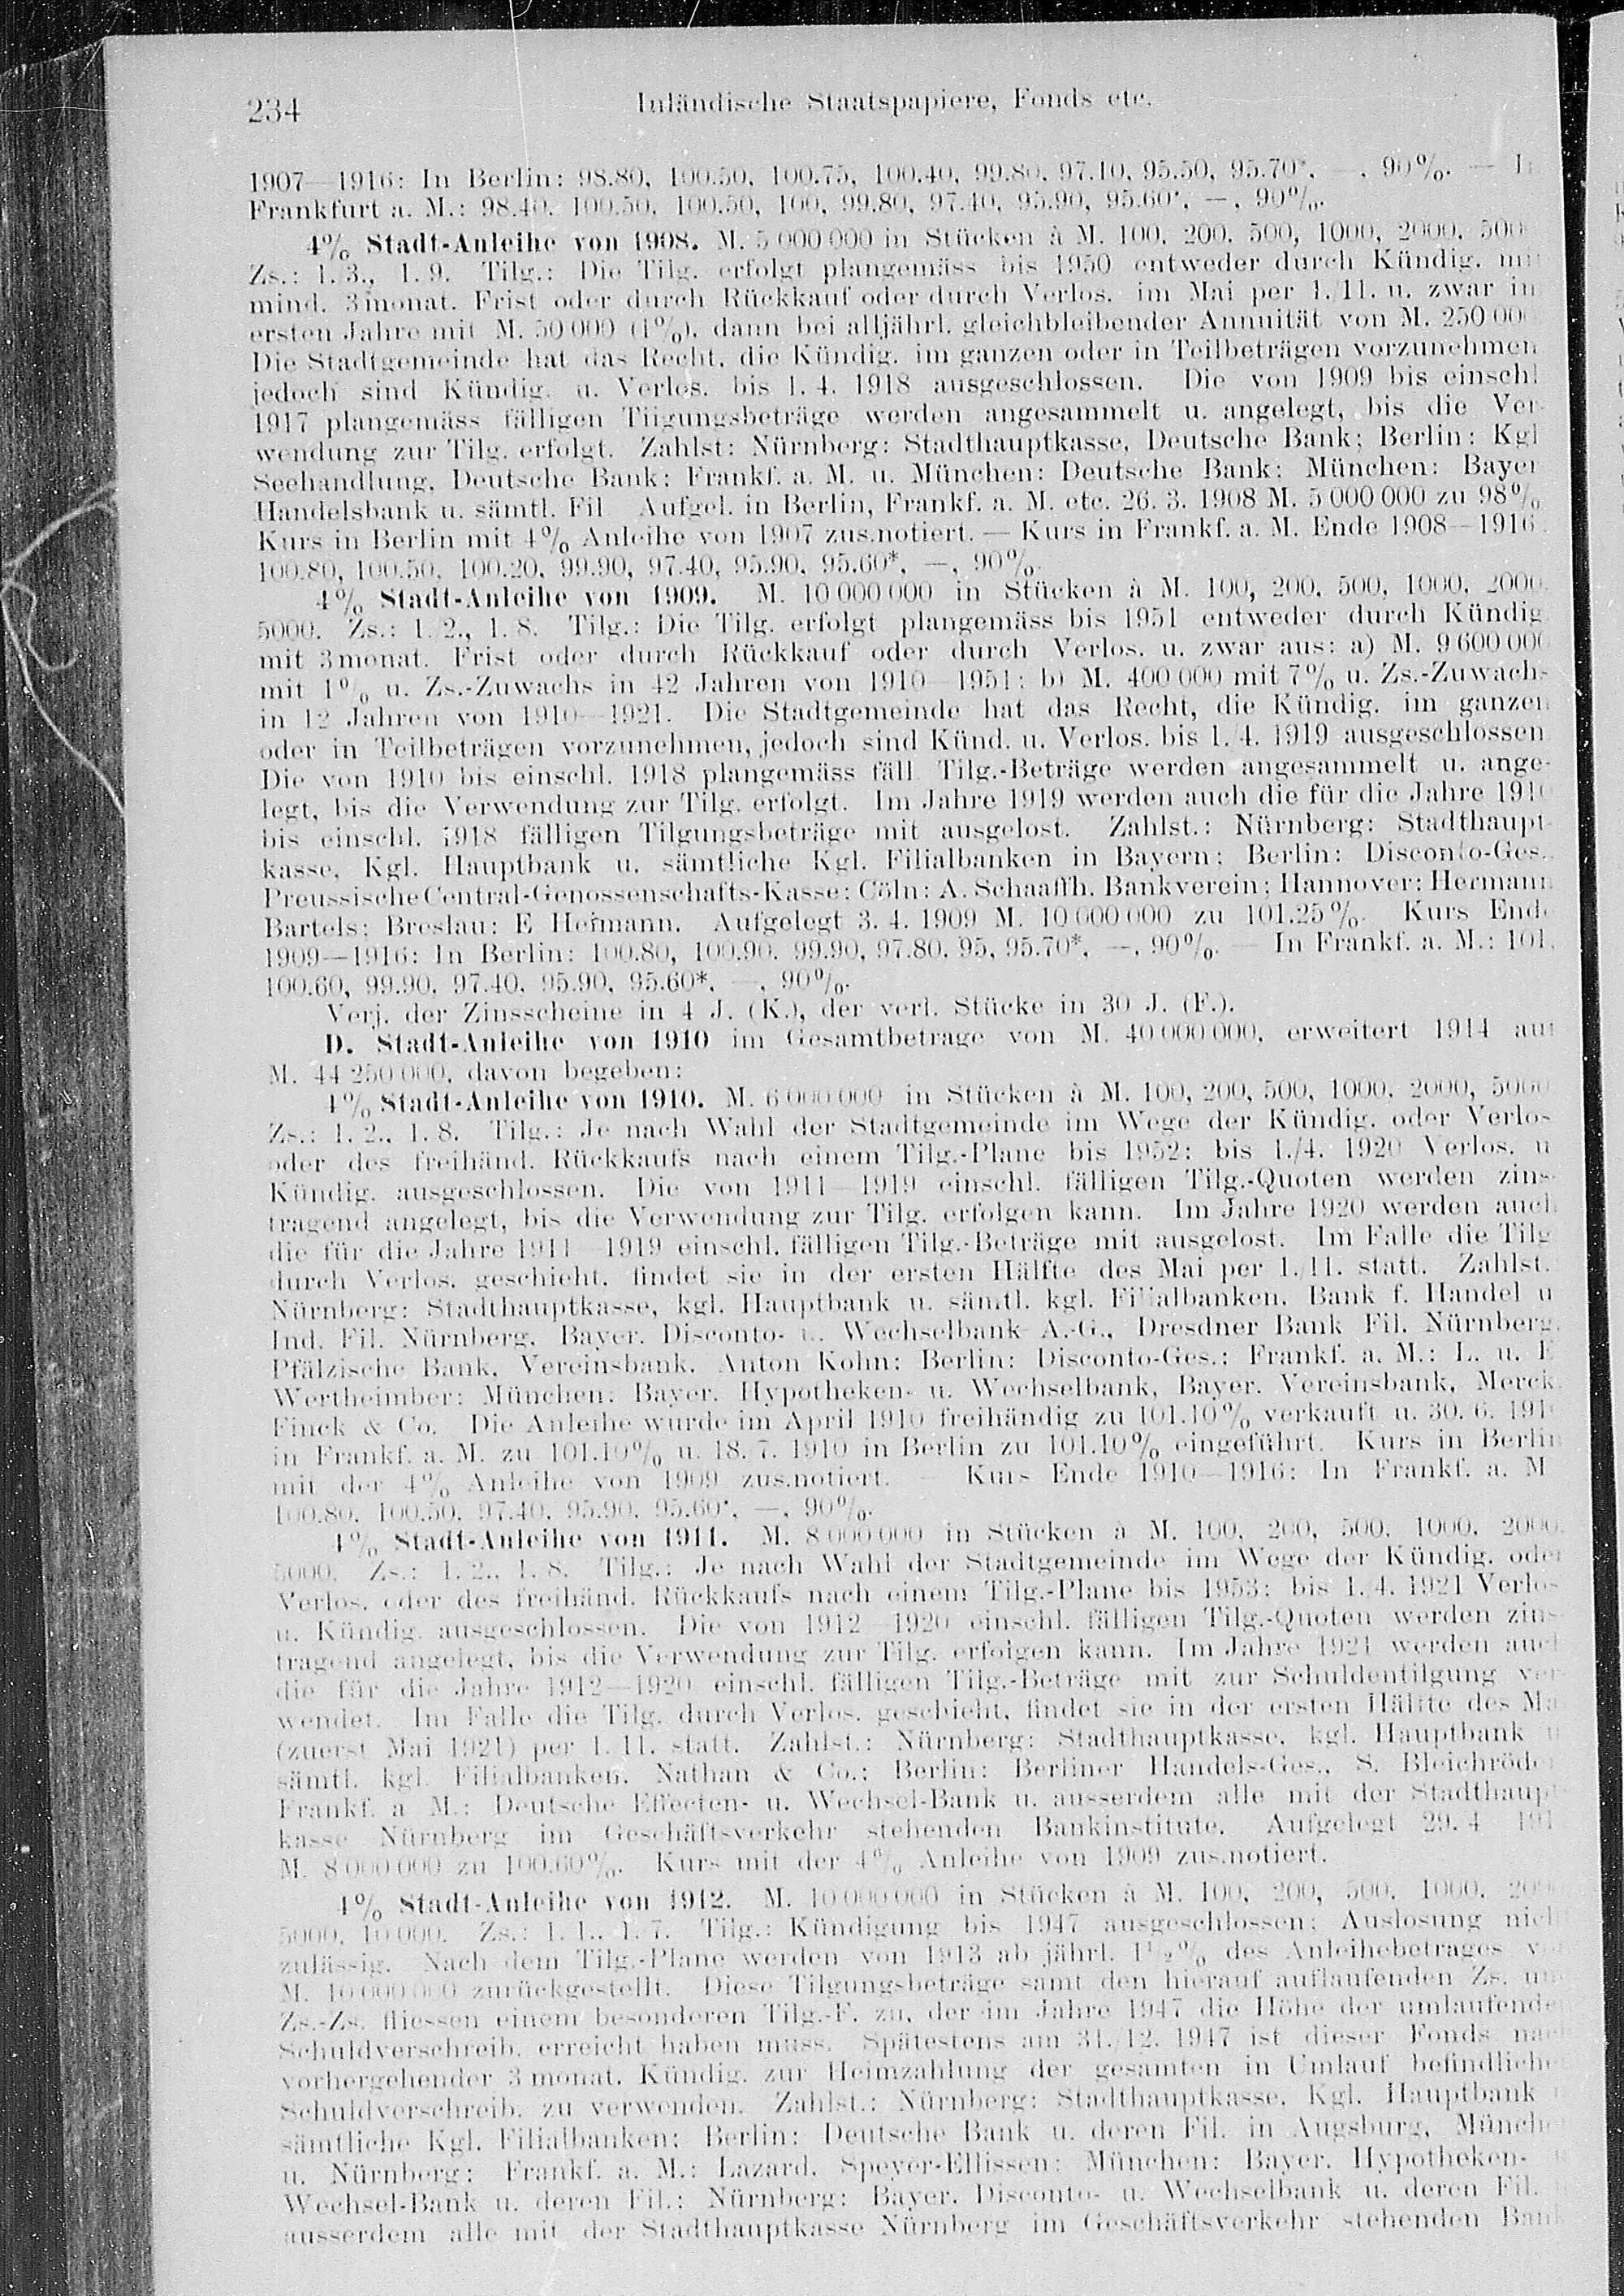 234
Inländische Staatspapiere, Fonds etc.
1907—1916: In Berlin: 98.80, 100.50, 100.75, 100.40, 99.80, 97.10, 95.50, 95.70*, —, 90%. — In
Frankfurt a. M.: 98.40, 100.50, 100.50, 100, 99.80, 97.40, 95.90, 95.60*, —, 90%.
4% Stadt-Anleihe von 1908. M. 5 000 000 in Stücken à M. 100, 200, 500, 1000, 2000, 500
Zs.: 1. 3., 1. 9. Tilg.: Die Tilg. erfolgt plangemäss bis 1950 entweder durch Kündig. mit
mind. 3 monat. Frist oder durch Rückkauf oder durch Verlos. im Mai per 1./11. u. zwar im
ersten Jahre mit M. 50 000 (1%), dann bei alljährl. gleichbleibender Annuität von M. 250 000
Die Stadtgemeinde hat das Recht, die Kündig. im ganzen oder in Teilbeträgen vorzunehmen
jedoch sind Kündig. u. Verlos. bis 1. 4. 1918 ausgeschlossen. Die von 1909 bis einschl
1917 plangemäss fälligen Tilgungsbeträge werden angesammelt u. angelegt, bis die Ver-
wendung zur Tilg. erfolgt. Zahlst: Nürnberg: Stadthauptkasse, Deutsche Bank; Berlin: Kgl
Seehandlung, Deutsche Bank; Frankf. a. M. u. München: Deutsche Bank; München: Bayer
Handelsbank u. sämtl. Fil. Aufgel. in Berlin, Frankf. a. M. etc. 26. 3. 1908 M. 5 000 000 zu 98%
Kurs in Berlin mit 4% Anleihe von 1907 zus.notiert. — Kurs in Frankf. a. M. Ende 1908—1916:
100.80, 100.50, 100.20, 99.90, 97.40, 95.90, 95.60*, —, 90%.
4% Stadt-Anleihe von 1909. M. 10 000 000 in Stücken à M. 100, 200, 500, 1000, 2000,
5000. Zs.: 1. 2., 1. 8. Tilg.: Die Tilg. erfolgt plangemäss bis 1951 entweder durch Kündig.
mit 3 monat. Frist oder durch Rückkauf oder durch Verlos. u. zwar aus: a) M. 9 600 000
mit 1% u. Zs.-Zuwachs in 42 Jahren von 1910—1951; b) M. 400 000 mit 7% u. Zs.-Zuwachs
in 12 Jahren von 1910—1921. Die Stadtgemeinde hat das Recht, die Kündig. im ganzen
oder in Teilbeträgen vorzunehmen, jedoch sind Künd. u. Verlos. bis 1./4. 1919 ausgeschlossen
Die von 1910 bis einschl. 1918 plangemäss fäll. Tilg.-Beträge werden angesammelt u. ange-
legt, bis die Verwendung zur Tilg. erfolgt. Im Jahre 1919 werden auch die für die Jahre 1910
bis einschl. 1918 fälligen Tilgungsbeträge mit ausgelost. Zahlst.: Nürnberg: Stadthaupt-
kasse, Kgl. Hauptbank u. sämtliche Kgl. Filialbanken in Bayern; Berlin: Disconto-Ges.,
Preussische Central-Genossenschafts-Kasse; Cöln: A. Schaaffh. Bankverein; Hannover: Hermann
Bartels; Breslau: E. Heimann. Aufgelegt 3. 4. 1909 M. 10 000 000 zu 101.25%. Kurs Ende
1909—1916: In Berlin: 100.80, 100.90, 99.90, 97.80, 95, 95.70*, —, 90%. — In Frankf. a. M.: 101,
100.60, 99.90, 97.40, 95.90, 95.60*, —, 90%.
Verj. der Zinsscheine in 4 J. (K.), der verl. Stücke in 30 J. (F.).
D. Stadt-Anleihe von 1910 im Gesamtbetrage von M. 40 000 000, erweitert 1914 auf
M. 44 250 000, davon begeben:
4% Stadt-Anleihe von 1910. M. 6 000 000 in Stücken à M. 100, 200, 500, 1000, 2000, 5000
Zs.: 1. 2., 1. 8. Tilg.: Je nach Wahl der Stadtgemeinde im Wege der Kündig. oder Verlos
oder des freihänd. Rückkaufs nach einem Tilg.-Plane bis 1952; bis 1./4. 1920 Verlos. u
Kündig. ausgeschlossen. Die von 1911—1919 einschl. fälligen Tilg.-Quoten werden zins-
tragend angelegt, bis die Verwendung zur Tilg. erfolgen kann. Im Jahre 1920 werden auch
die für die Jahre 1911—1919 einschl. fälligen Tilg.-Beträge mit ausgelost. Im Falle die Tilg
durch Verlos. geschieht, findet sie in der ersten Hälfte des Mai per 1./11. statt. Zahlst.
Nürnberg: Stadthauptkasse, kgl. Hauptbank u. sämtl. kgl. Filialbanken, Bank f. Handel u
Ind. Fil. Nürnberg, Bayer. Disconto- u. Wechselbank A.-G., Dresdner Bank Fil. Nürnberg,
Pfälzische Bank, Vereinsbank, Anton Kohn; Berlin: Disconto-Ges.; Frankf. a. M.: L. u. E
Wertheimber; München: Bayer. Hypotheken- u. Wechselbank, Bayer. Vereinsbank, Merck,
Finck & Co. Die Anleihe wurde im April 1910 freihändig zu 101.10% verkauft u. 30. 6. 1910
in Frankf. a. M. zu 101.10% u. 18. 7. 1910 in Berlin zu 101.10% eingeführt. Kurs in Berlin
mit der 4% Anleihe von 1909 zus.notiert. — Kurs Ende 1910—1916: In Frankf. a. M
100.80, 100.50, 97.40, 95.90, 95.60*, —, 90%.
4% Stadt-Anleihe von 1911. M. 8 000 000 in Stücken à M. 100, 200, 500, 1000, 2000,
5000. Zs.: 1. 2., 1. 8. Tilg.: Je nach Wahl der Stadtgemeinde im Wege der Kündig. oder
Verlos. oder des freihänd. Rückkaufs nach einem Tilg.-Plane bis 1953; bis 1./4. 1921 Verlos
u. Kündig. ausgeschlossen. Die von 1912—1920 einschl. fälligen Tilg.-Quoten werden zins-
tragend angelegt, bis die Verwendung zur Tilg. erfolgen kann. Im Jahre 1921 werden auch
die für die Jahre 1912—1920 einschl. fälligen Tilg.-Beträge mit zur Schuldentilgung ver
wendet. Im Falle die Tilg. durch Verlos. geschieht, findet sie in der ersten Hälfte des Ma
(zuerst Mai 1921) per 1. 11. statt. Zahlst.: Nürnberg: Stadthauptkasse, kgl. Hauptbank u
sämtl. kgl. Filialbanken, Nathan & Co.; Berlin: Berliner Handels-Ges., S. Bleichröder
Frankf. a. M.: Deutsche Effecten- u. Wechsel-Bank u. ausserdem alle mit der Stadthaupt
kasse Nürnberg im Geschäftsverkehr stehenden Bankinstitute. Aufgelegt 29. 4 191
M. 8 000 000 zu 100.60%. Kurs mit der 4% Anleihe von 1909 zus.notiert.
4% Stadt-Anleihe von 1912. M. 10 000 000 in Stücken à M. 100, 200, 500, 1000, 2000
5000, 10 000. Zs.: 1. 1., 1. 7. Tilg.: Kündigung bis 1947 ausgeschlossen; Auslosung nich
zulässig. Nach dem Tilg.-Plane werden von 1913 ab jährl. 1½% des Anleihebetrages v
M. 10 000 000 zurückgestellt. Diese Tilgungsbeträge samt den hierauf auflaufenden Zs. un
Zs.-Zs. fliessen einem besonderen Tilg.-F. zu, der im Jahre 1947 die Höhe der umlaufende
Schuldverschreib. erreicht haben muss. Spätestens am 31./12. 1947 ist dieser Fonds nac
vorhergehender 3 monat. Kündig. zur Heimzahlung der gesamten in Umlauf befindliche
Schuldverschreib. zu verwenden. Zahlst.: Nürnberg: Stadthauptkasse, Kgl. Hauptbank
sämtliche Kgl. Filialbanken; Berlin: Deutsche Bank u. deren Fil. in Augsburg, Münche
u. Nürnberg; Frankf. a. M.: Lazard, Speyer-Ellissen; München: Bayer. Hypotheken-
Wechsel-Bank u. deren Fil.; Nürnberg: Bayer. Disconto- u. Wechselbank u. deren Fil.
ausserdem alle mit der Stadthauptkasse Nürnberg im Geschäftsverkehr stehenden Bank